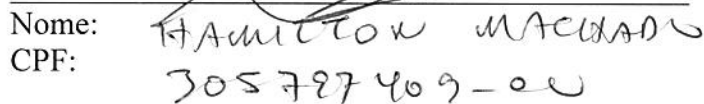 Nome: HAMILTON MACHADO
CPF: 305787409-00